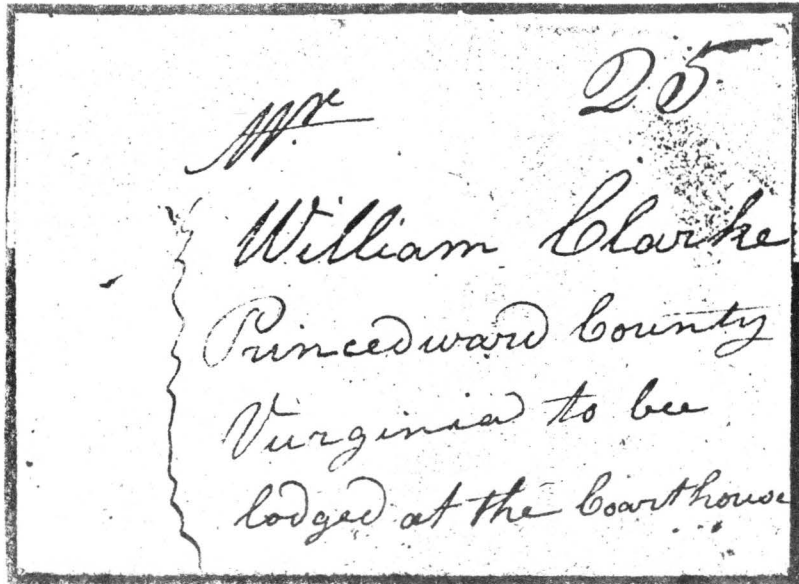 25
Mr.
William Clarke
Princedward County
Vurginia to bee
lodged at the Coarthouse